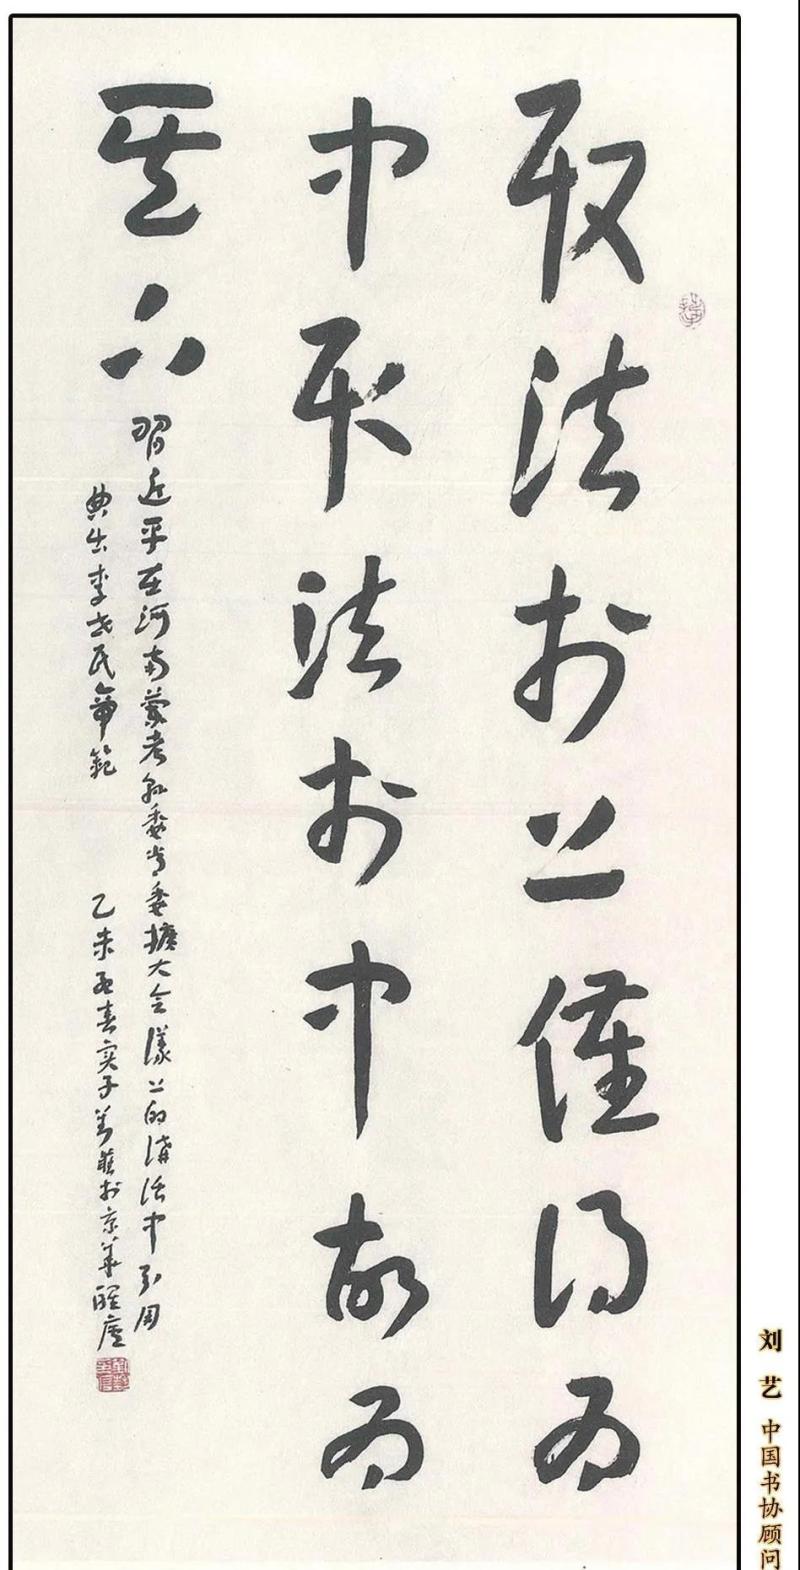 取法於上僅得為
中取法於中故為
其下
習近平在河南蘭考縣委常委擴大會議上的講話中引用
典出李世民帝範
乙未孟春劉藝於京華醒廬
刘 艺 中国书协顾问